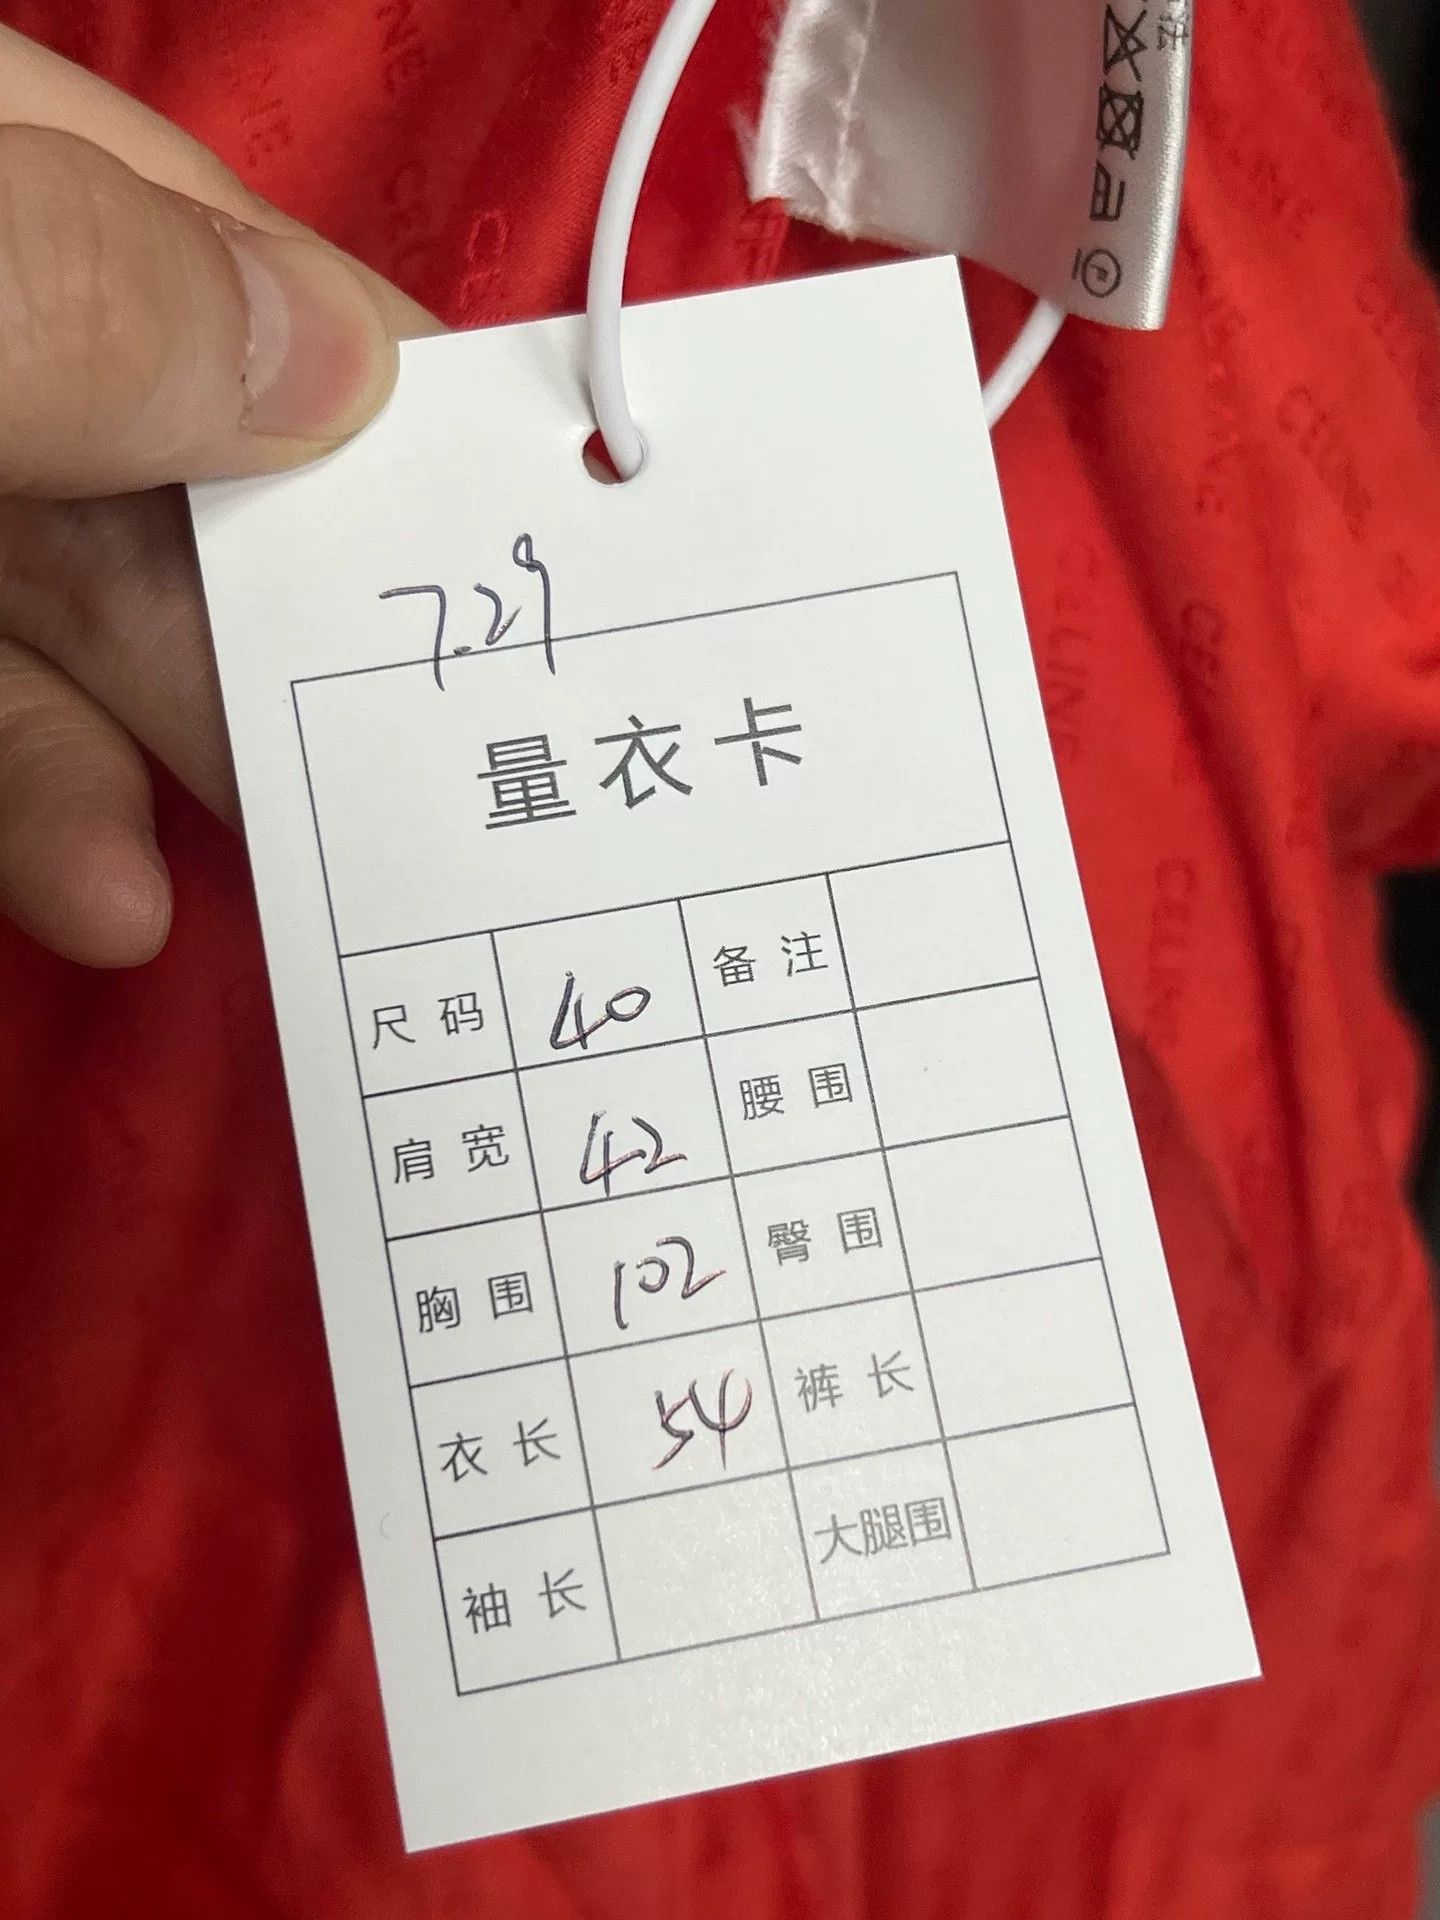 7.29
量衣卡
尺码 40 备注
肩宽 42 腰围
胸围 102 臀围
衣长 54 裤长
袖长 大腿围
CELINE